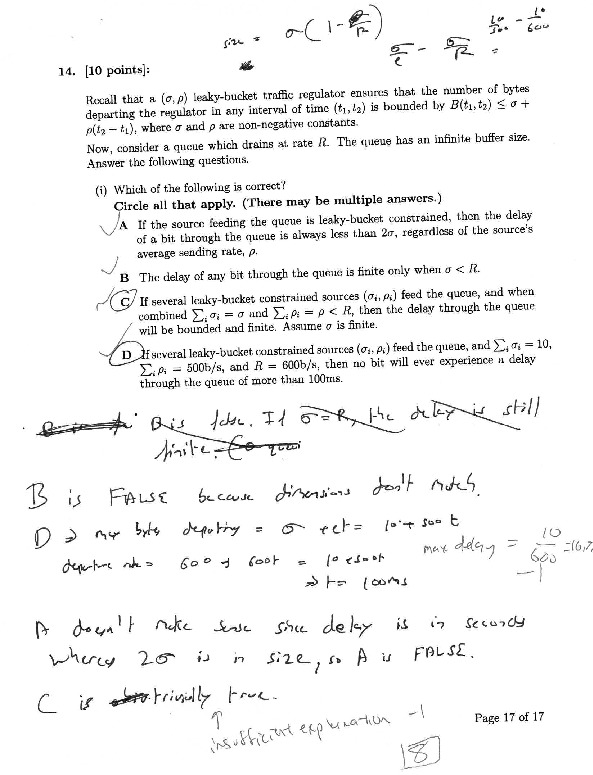 size = σ(1 - ρ/R)
σ/ρ - σ/R =
10/500 - 10/600
14. [10 points]:
Recall that a (σ, ρ) leaky-bucket traffic regulator ensures that the number of bytes
departing the regulator in any interval of time (t₁, t₂) is bounded by B(t₁, t₂) ≤ σ +
ρ(t₂ − t₁), where σ and ρ are non-negative constants.
Now, consider a queue which drains at rate R. The queue has an infinite buffer size.
Answer the following questions.
(i) Which of the following is correct?
Circle all that apply. (There may be multiple answers.)
A If the source feeding the queue is leaky-bucket constrained, then the delay
of a bit through the queue is always less than 2σ, regardless of the source's
average sending rate, ρ.
B The delay of any bit through the queue is finite only when σ < R.
C If several leaky-bucket constrained sources (σᵢ, ρᵢ) feed the queue, and when
combined ∑ᵢ σᵢ = σ and ∑ᵢ ρᵢ = ρ < R, then the delay through the queue
will be bounded and finite. Assume σ is finite.
D If several leaky-bucket constrained sources (σᵢ, ρᵢ) feed the queue, and ∑ᵢ σᵢ = 10,
∑ᵢ ρᵢ = 500b/s, and R = 600b/s, then no bit will ever experience a delay
through the queue of more than 100ms.
B is false. If σ = R, the delay is still
finite.
B is FALSE because dimensions don't match.
D ⇒ max byts departing = σ + ρt = 10 + 500 t
departure rate = 600 ⇒ 600t = 10 + 500t
⇒ t = 100ms
max delay = 10/600 = 16.7
-1
A doesn't make sense since delay is in seconds
whereas 2σ is in size, so A is FALSE.
C is trivially true.
insufficient explanation -1
8
Page 17 of 17